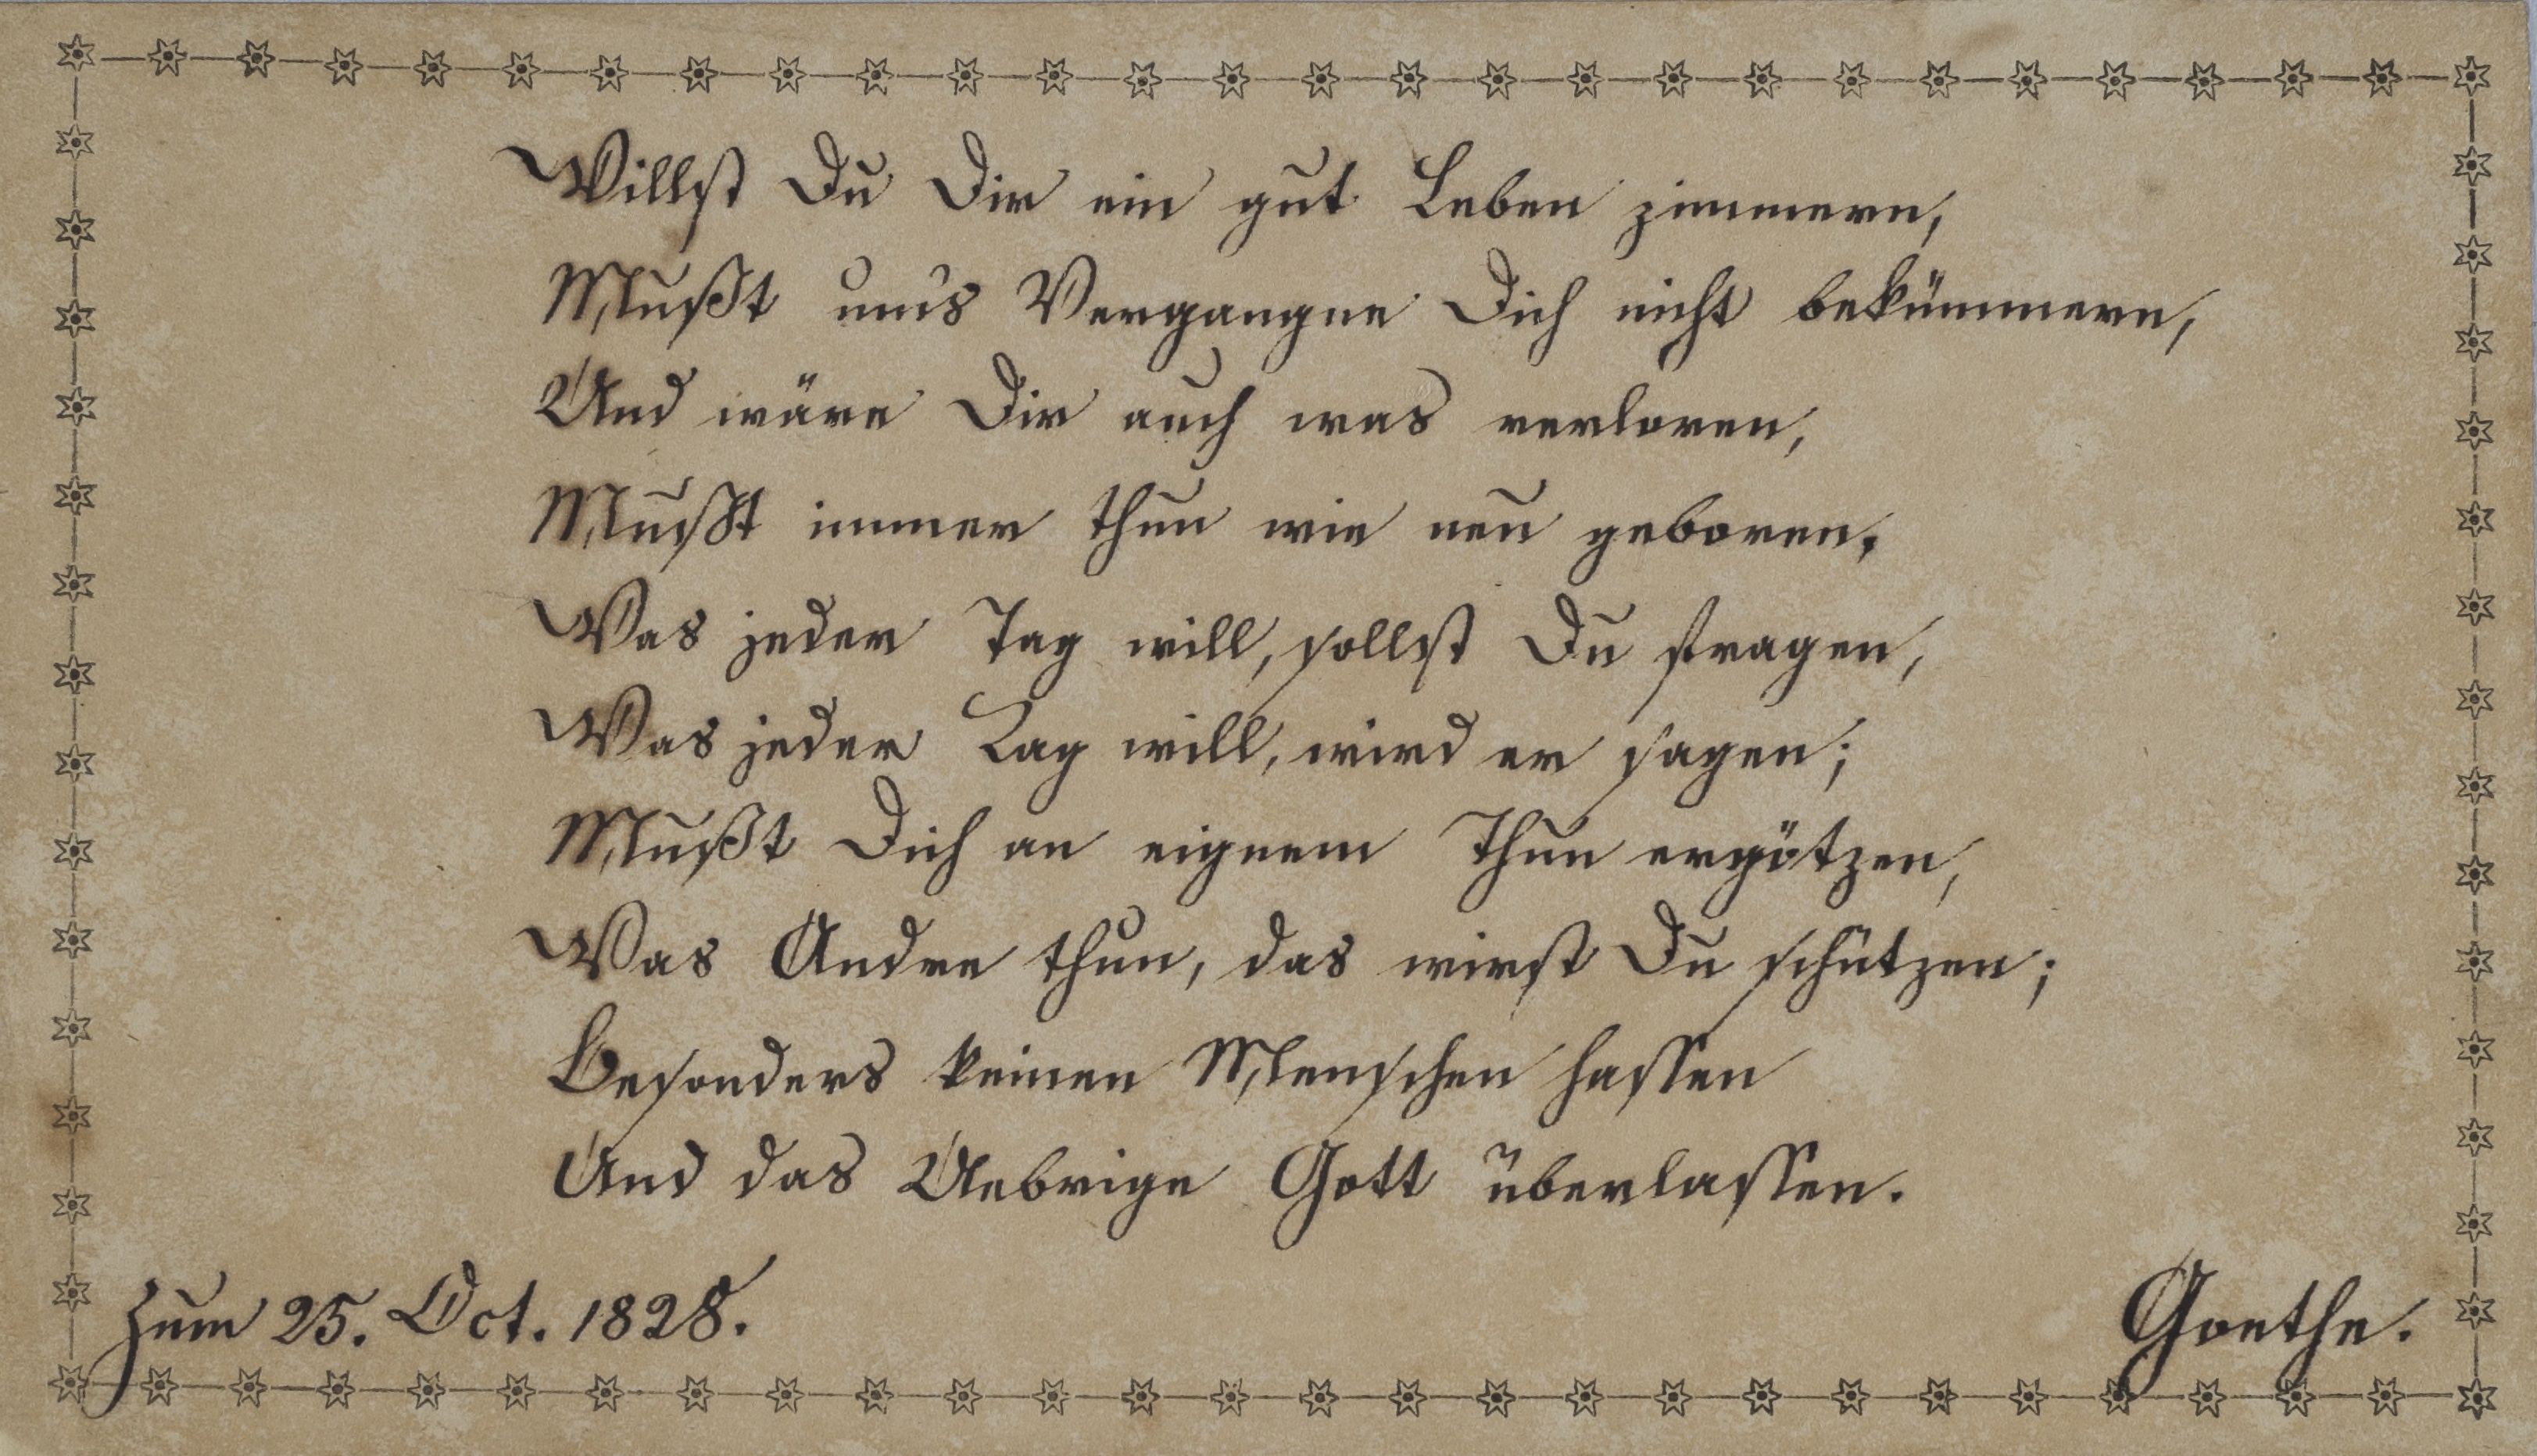 Willst Du Dir ein gut Leben zimmern,
Mußt um's Vergangne Dich nicht bekümmern,
Und wäre Dir auch was verloren,
Mußt immer thun wie neu geboren.
Was jeder Tag will, sollst Du fragen,
Was jeder Tag will, wird er sagen;
Mußt Dich an eignem Thun ergötzen,
Was Andre thun, das wirst Du schützen;
Besonders keinen Menschen hassen
Und das Uebrige Gott überlassen.
Zum 25. Oct. 1828.
Goethe.